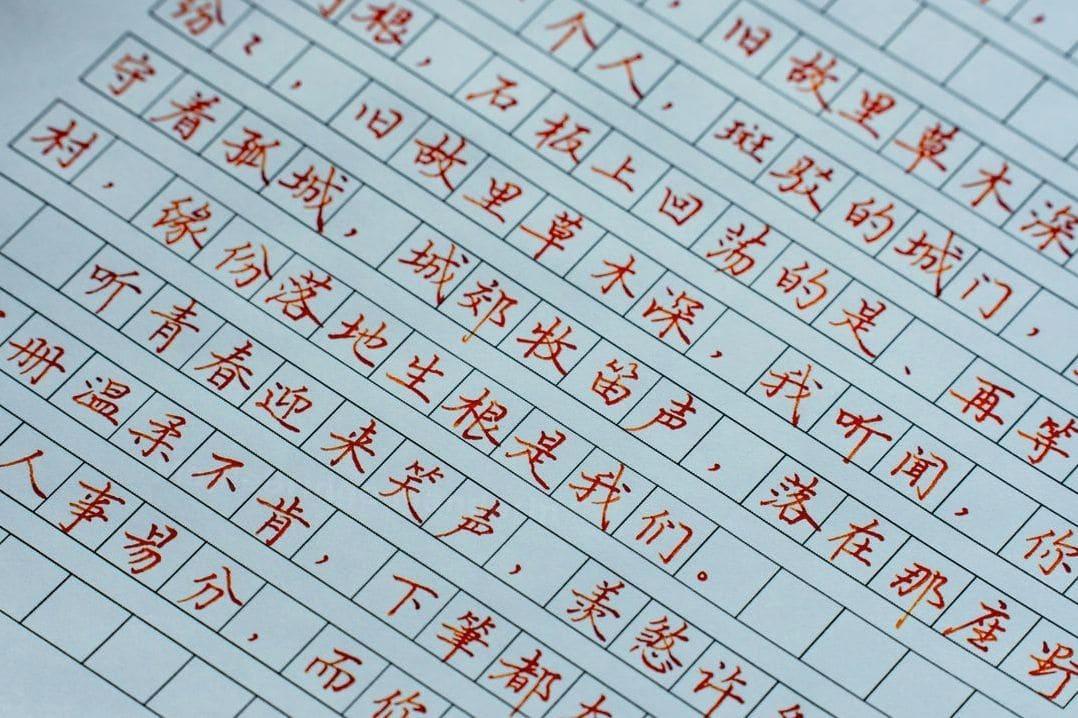 旧故里草木深
个人，斑驳的城门，
根，石板上回荡的是、再等
纷〻，旧故里草木深，我听闻，你
守着孤城，城郊牧笛声，落在那座野
村，缘份落地生根是我们。
听青春迎来笑声，羡煞许
册温柔不肯，下笔都
人事易分，而你